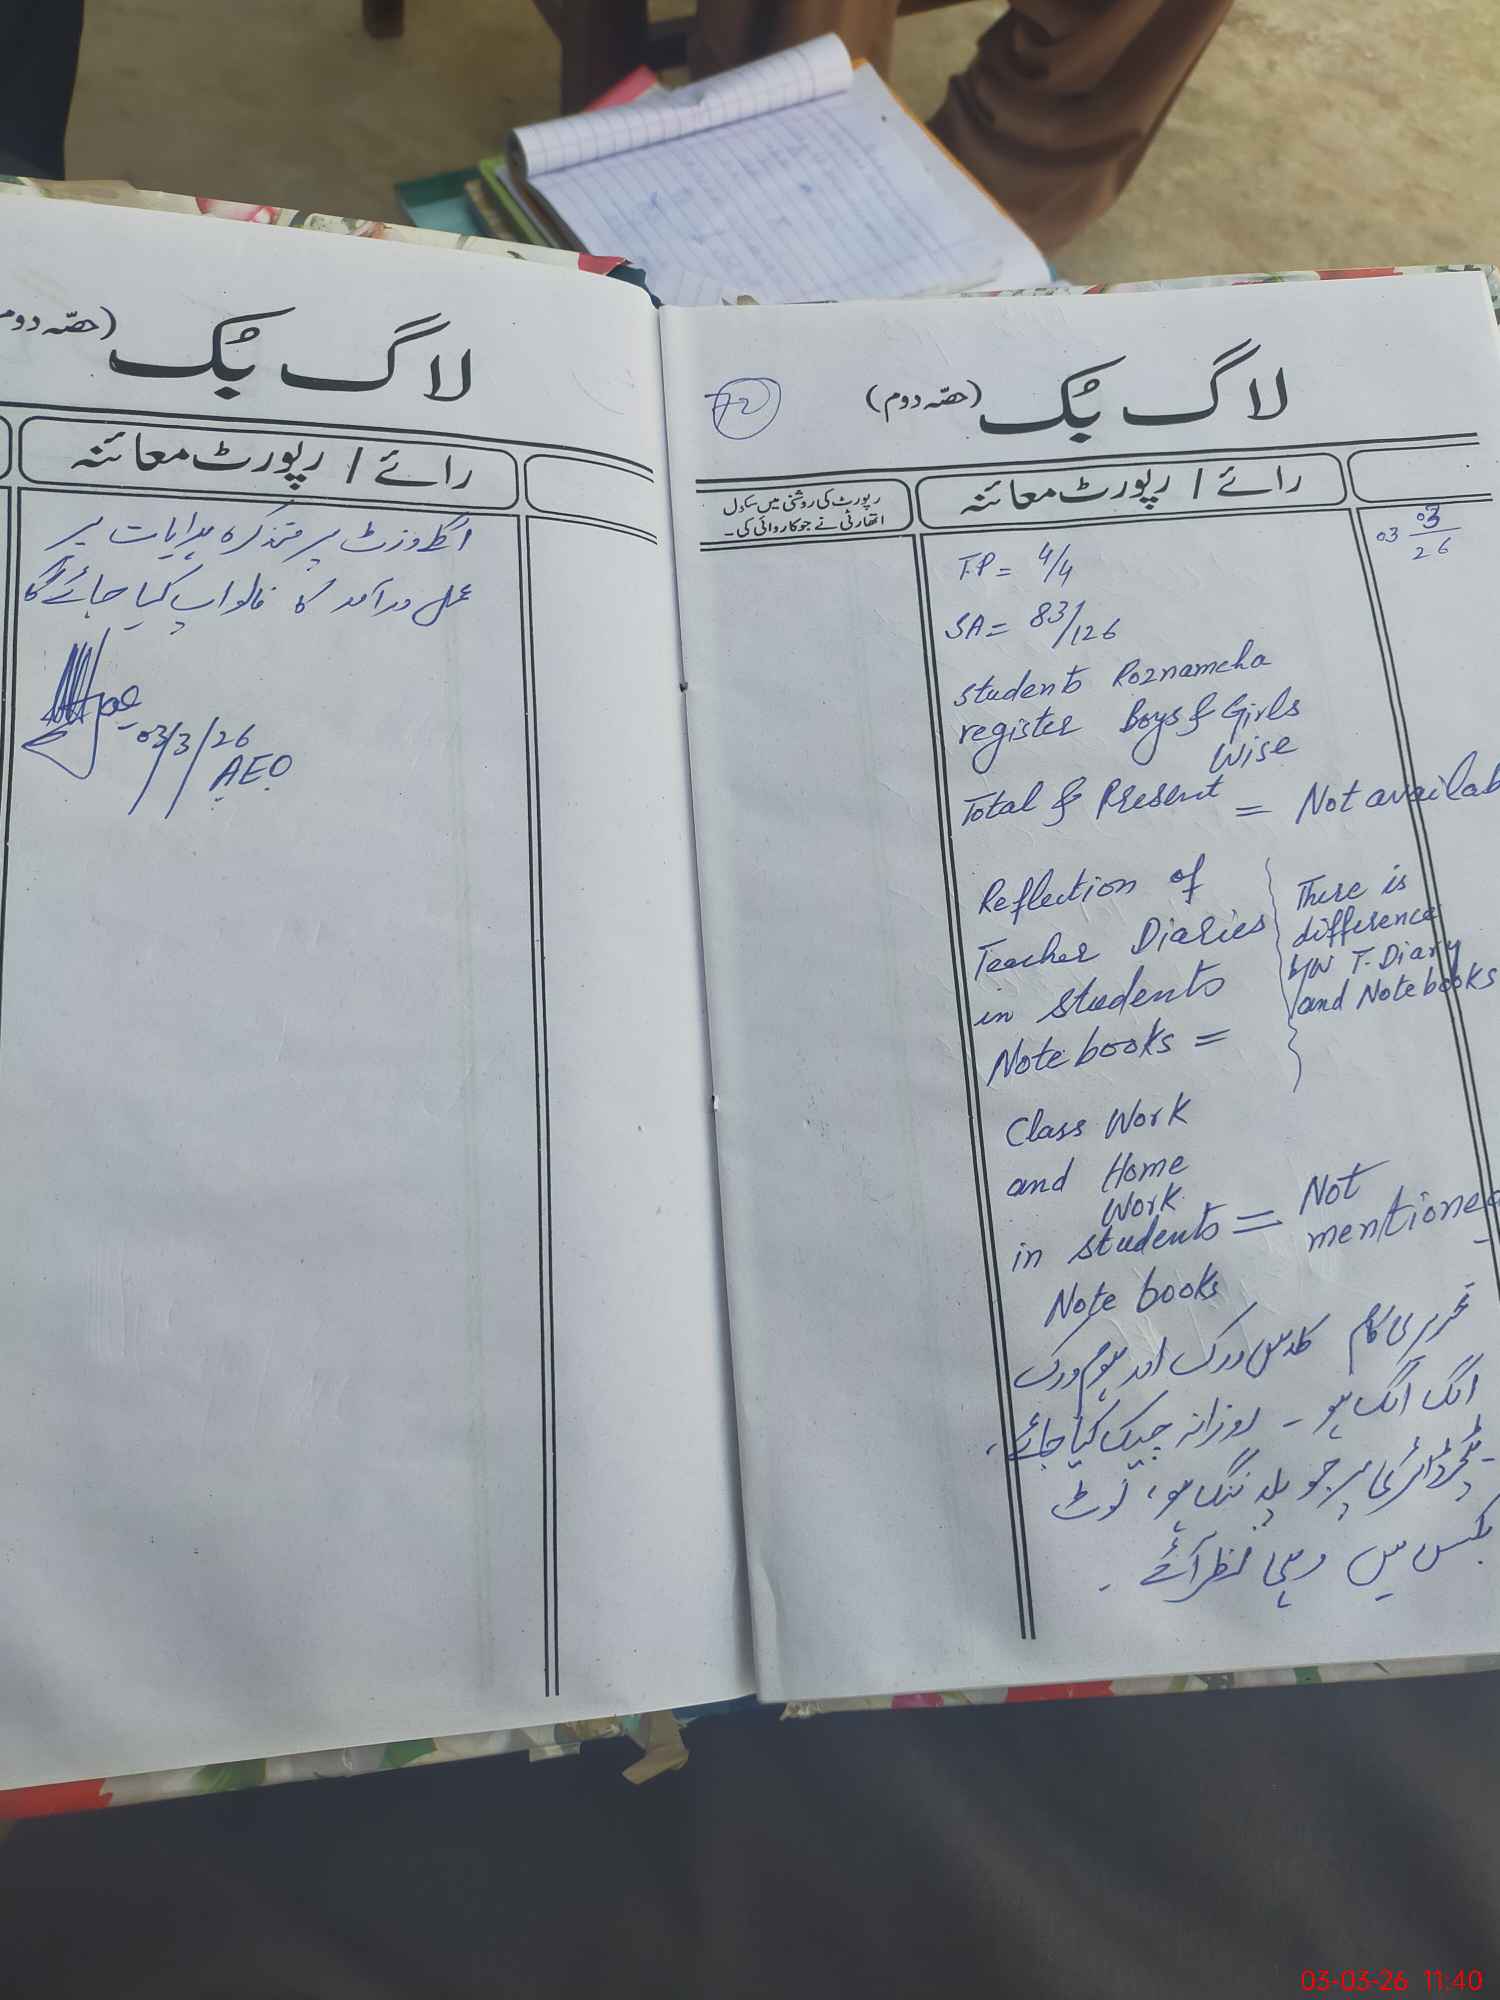 لاگ بُک (حصّہ دوم)
رائے / رپورٹ معائنہ
رپورٹ کی روشنی میں سکول
اتھارٹی نے جو کاروائی کی۔
72
03 03/26
T.P = 4/4
SA = 83/126
students Roznamcha
register Boys & Girls
Wise
Total & Present = Not availab
Reflection of
Teacher Diaries
in students
Note books =
There is
difference
b/w T. Diary
and Note books
Class Work
and Home
Work
in students = Not mentioned
Note books
تحریری کام کلاس ورک اور ہوم ورک
الگ الگ ہو ۔ روزانہ چیک کیا جائے،
ٹیچر ڈائری پر جو پلاننگ ہو، نوٹ
بکس میں وہی نظر آئے ۔
لاگ بُک (حصّہ دوم
رائے / رپورٹ معائنہ
اگلے وزٹ پر متذکرہ ہدایات پر
عمل درآمد کا فالو اپ کیا جائے گا
03/3/26
AEO
03-03-26 11:40